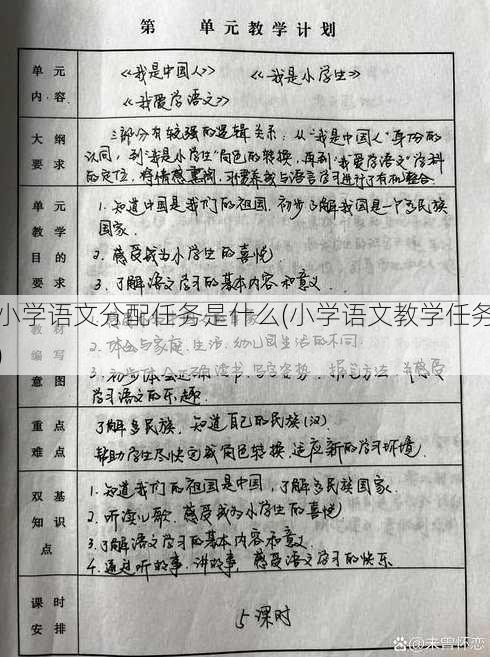 第 单元教学计划
单元内容
《我是中国人》 《我是小学生》
《我爱学语文》
大纲要求
三部分有较强的逻辑关系：从“我是中国人”身份的
认同，到“我是小学生”角色的转换，再到“我爱学语文”学科
的定位，将情感
习惯养成与语言学习进行了有机整合
单元教学目的要求
1. 知道中国是我们的祖国，初步了解我国是一个多民族
国家．
2. 感受成为小学生的喜悦
3. 了解语文学习的基本内容和意义．
小学语文分配任务是什么(小学语文教学任务
)
教材编写意图
2. 体会与家庭、生活、幼儿园生活的不同
3. 初步体会正确读书、写字姿势、
方法，并感受
学习语文的乐趣
重点难点
了解多民族，知道自己的民族(汉)
帮助学生尽快完成角色转换，适应新的学习环境．
双基知识点
1. 知道我们的祖国是中国，了解多民族国家．
2. 听读儿歌，感受成为小学生的喜悦
3. 了解语文学习的基本内容和意义．
4. 通过听故事、讲故事，感受语文学习的快乐
课时安排
5课时
@来兽怀恋